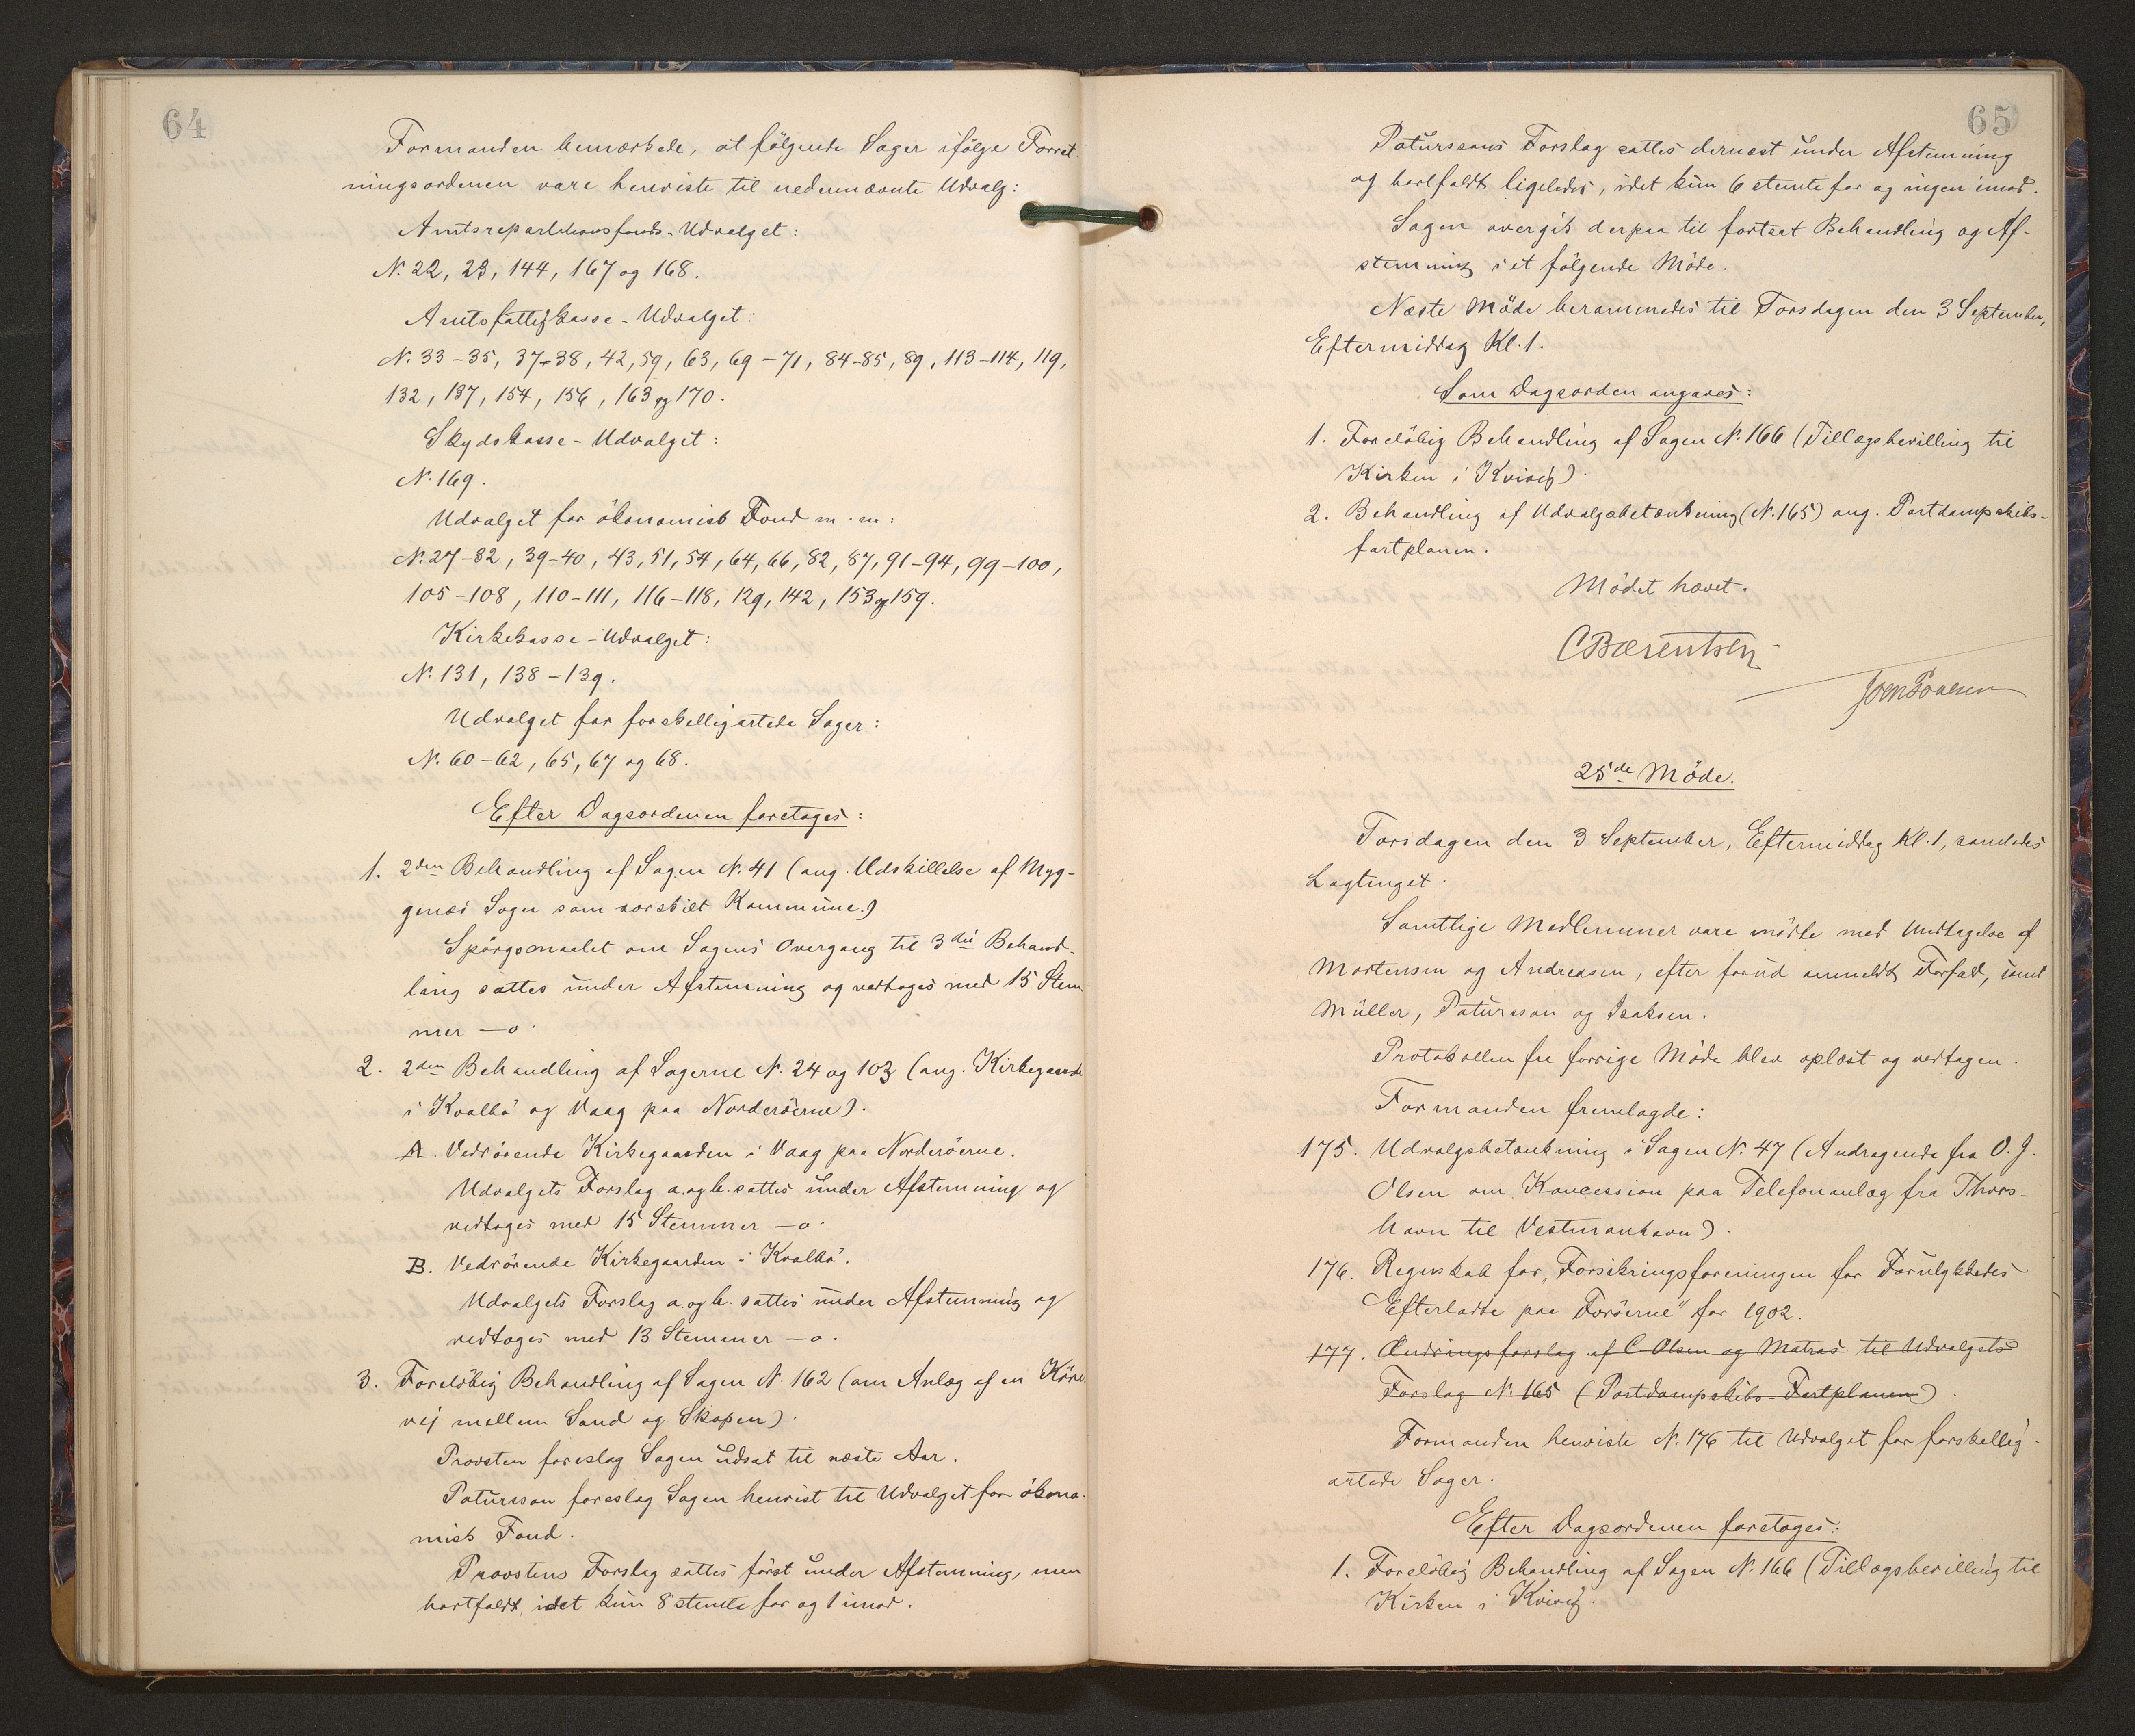 64
Formanden bemærkede, at følgende Sager ifølge Forret-
ningsordenen vare henviste til nedennævnte Udvalg:
Amtsrepartitionsfonds-Udvalget:
N. 22, 23, 144, 167 og 168.
Amtsfattigkasse-Udvalget:
N. 33-35, 37-38, 42, 59, 63, 69-71, 84-85, 89, 113-114, 119,
132, 137, 154, 156, 163 og 170.
Skydskasse-Udvalget:
N. 169.
Udvalget for økonomisk Fond m.m:
N. 27-32, 39-40, 43, 51, 54, 64, 66, 82, 87, 91-94, 99-100,
105-108, 110-111, 116-118, 129, 142, 153 og 159.
Kirkekasse-Udvalget:
N. 131, 138-139.
Udvalget for forskelligartede Sager:
N. 60-62, 65, 67 og 68.
Efter Dagsordenen foretoges:
1. 2den Behandling af Sagen N. 41 (ang. Udskillelse af Myg-
genæs Sogn som særskilt Kommune.)
Spørgsmaalet om Sagens Overgang til 3die Behand-
ling sattes under Afstemning og vedtoges med 15 Stem
mer - o.
2. 2den Behandling af Sagerne N. 24 og 103 (ang. Kirkegaarde
i Kvalbø og Vaag paa Norderøerne).
A. Vedrørende Kirkegaarden i Vaag paa Norderøerne.
Udvalgets Forslag a. og b. sattes under Afstemning og
vedtoges med 15 Stemmer - o.
B. Vedrørende Kirkegaarden i Kvalbø.
Udvalgets Forslag a. og b. sattes under Afstemning og
vedtoges med 13 Stemmer - o.
3. Foreløbig Behandling af Sagen N. 162 (om Anlæg af en Køre
vej mellem Sand og Skopen).
Provsten foreslog Sagen udsat til næste Aar.
Patursson foreslog Sagen henvist til Udvalget for økono-
misk Fond.
Provstens Forslag sattes først under Afstemning, men
bortfaldt, idet kun 8 stemte for og 1 imod.
65
Paturssons Forslag sattes dernæst under Afstemning
og bortfaldt ligeledes, idet kun 6 stemte for og ingen imod.
Sagen overgik derpaa til fortsat Behandling og Af-
stemning i et følgende Møde.
Næste Møde berammedes til Torsdagen den 3 September,
Eftermiddag Kl. 1.
Som Dagsorden angaves:
1. Foreløbig Behandling af Sagen N. 166 (Tillægsbevilling til
Kirken i Kvivig).
2. Behandling af Udvalgsbetænkning (N. 165) ang. Postdampskibs-
fartplanen.
Mødet hævet.
CBærentsen
Joen Poulsen
25de Møde.
Torsdagen den 3 September, Eftermiddag Kl. 1, samledes
Lagtinget.
Samtlige Medlemmer vare mødte med Undtagelse af
Mortensen og Andreasen, efter forud anmeldt Forfald, samt
Müller, Patursson og Isaksen.
Protokollen fra forrige Møde blev oplæst og vedtagen.
Formanden fremlagde:
175. Udvalgsbetænkning i Sagen N. 47 (Andragende fra O. J.
Olsen om Koncession paa Telefonanlæg fra Thors-
havn til Vestmanhavn).
176. Regnskab for "Forsikringsforeningen for Forulykkedes
Efterladte paa Færøerne" for 1902.
177. Ændringsforslag af C Olsen og Matras til Udvalgets
Forslag N. 165 (Postdampskibs-Fartplanen).
Formanden henviste N. 176 til Udvalget for forskellig-
artede Sager.
Efter Dagsordenen foretoges:
1. Foreløbig Behandling af Sagen N. 166 (Tillægsbevilling til
Kirken i Kvivig.